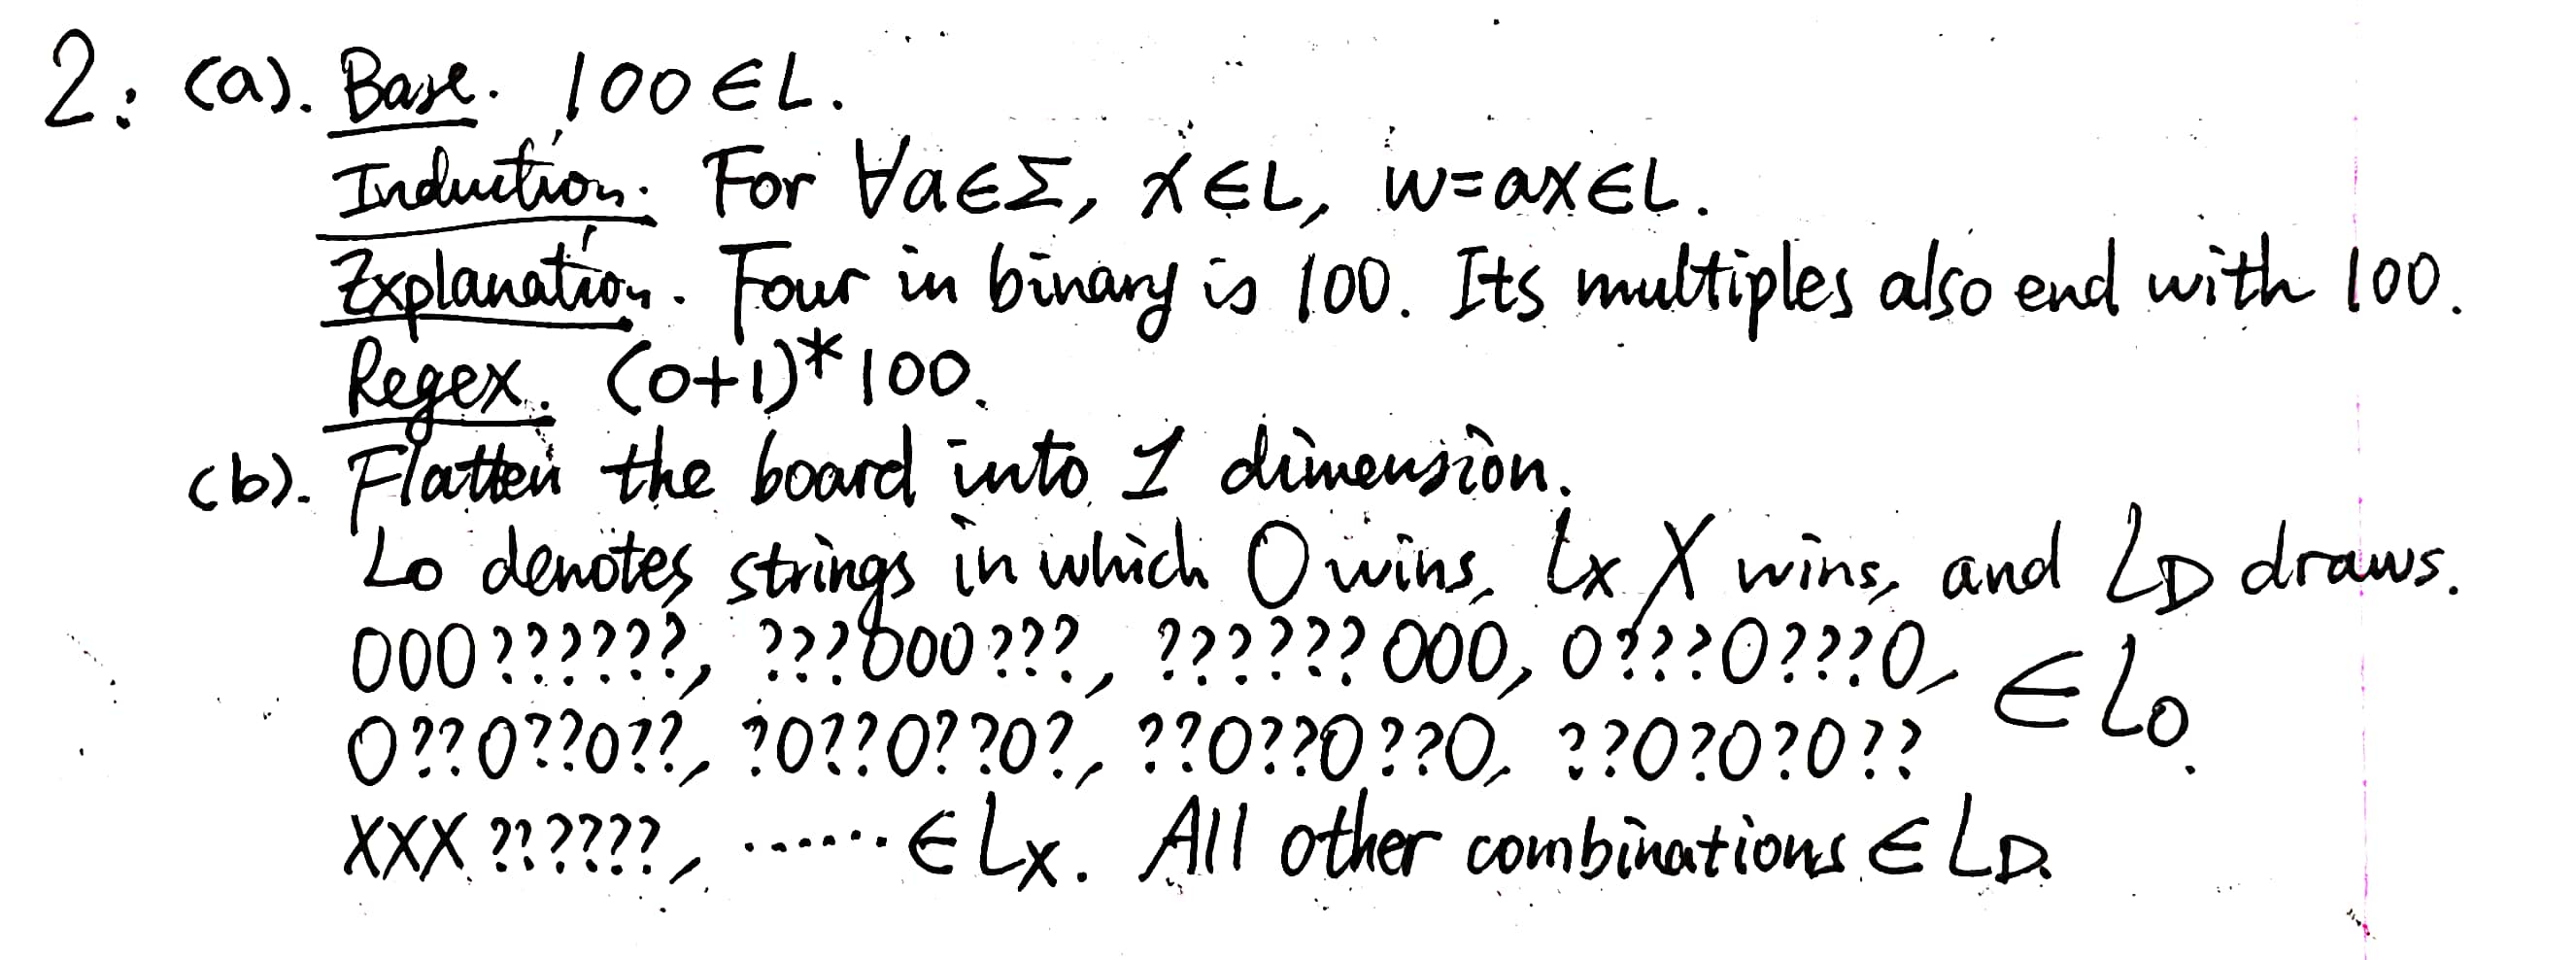 2: (a). Base. 100 ∈ L.
Induction. For ∀a∈Σ, x∈L, w=ax∈L.
Explanation. Four in binary is 100. Its multiples also end with 100.
Regex. (0+1)*100.
(b). Flatten the board into 1 dimension.
Lo denotes strings in which O wins, Lx X wins, and LD draws.
OOO??????, ???OOO???, ??????OOO, O???O???O,
O??O??O??, ?O??O??O?, ??O??O??O, ??O?O?O?? ∈ LO.
XXX??????, ...... ∈ LX. All other combinations ∈ LD.